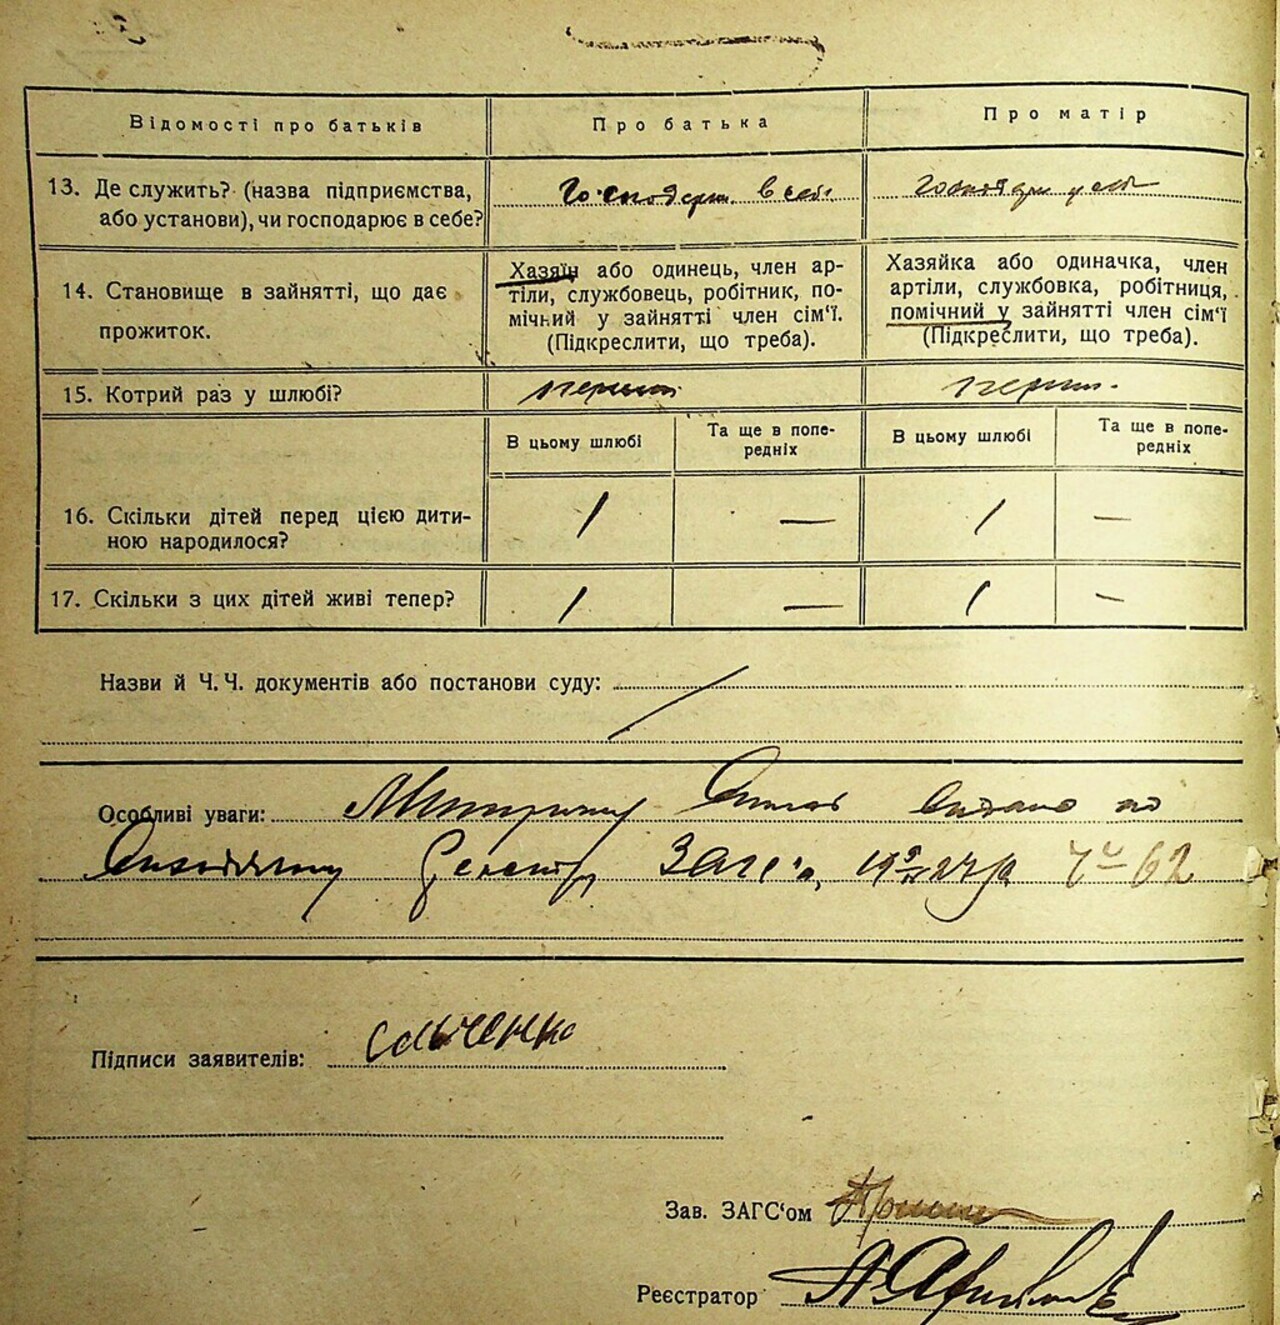 Відомості про батьків
Про батька
Про матір
13. Де служить? (назва підприємства,
або установи), чи господарює в себе?
14. Становище в зайнятті, що дає
прожиток.
Хазяїн або одинець, член ар-
тіли, службовець, робітник, по-
мічний у зайнятті член сім'ї.
(Підкреслити, що треба).
Хазяйка або одиначка, член
артіли, службовка, робітниця,
помічний у зайнятті член сім'ї
(Підкреслити, що треба).
15. Котрий раз у шлюбі?
В цьому шлюбі
Та ще в попе-
редніх
В цьому шлюбі
Та ще в попе-
редніх
16. Скільки дітей перед цією дити-
ною народилося?
1 — 1 —
17. Скільки з цих дітей живі тепер?
1 — 1 —
Назви й Ч. Ч. документів або постанови суду:
Особливі уваги: видано по
62
Підписи заявителів:
Зав. ЗАГС'ом
Реєстратор